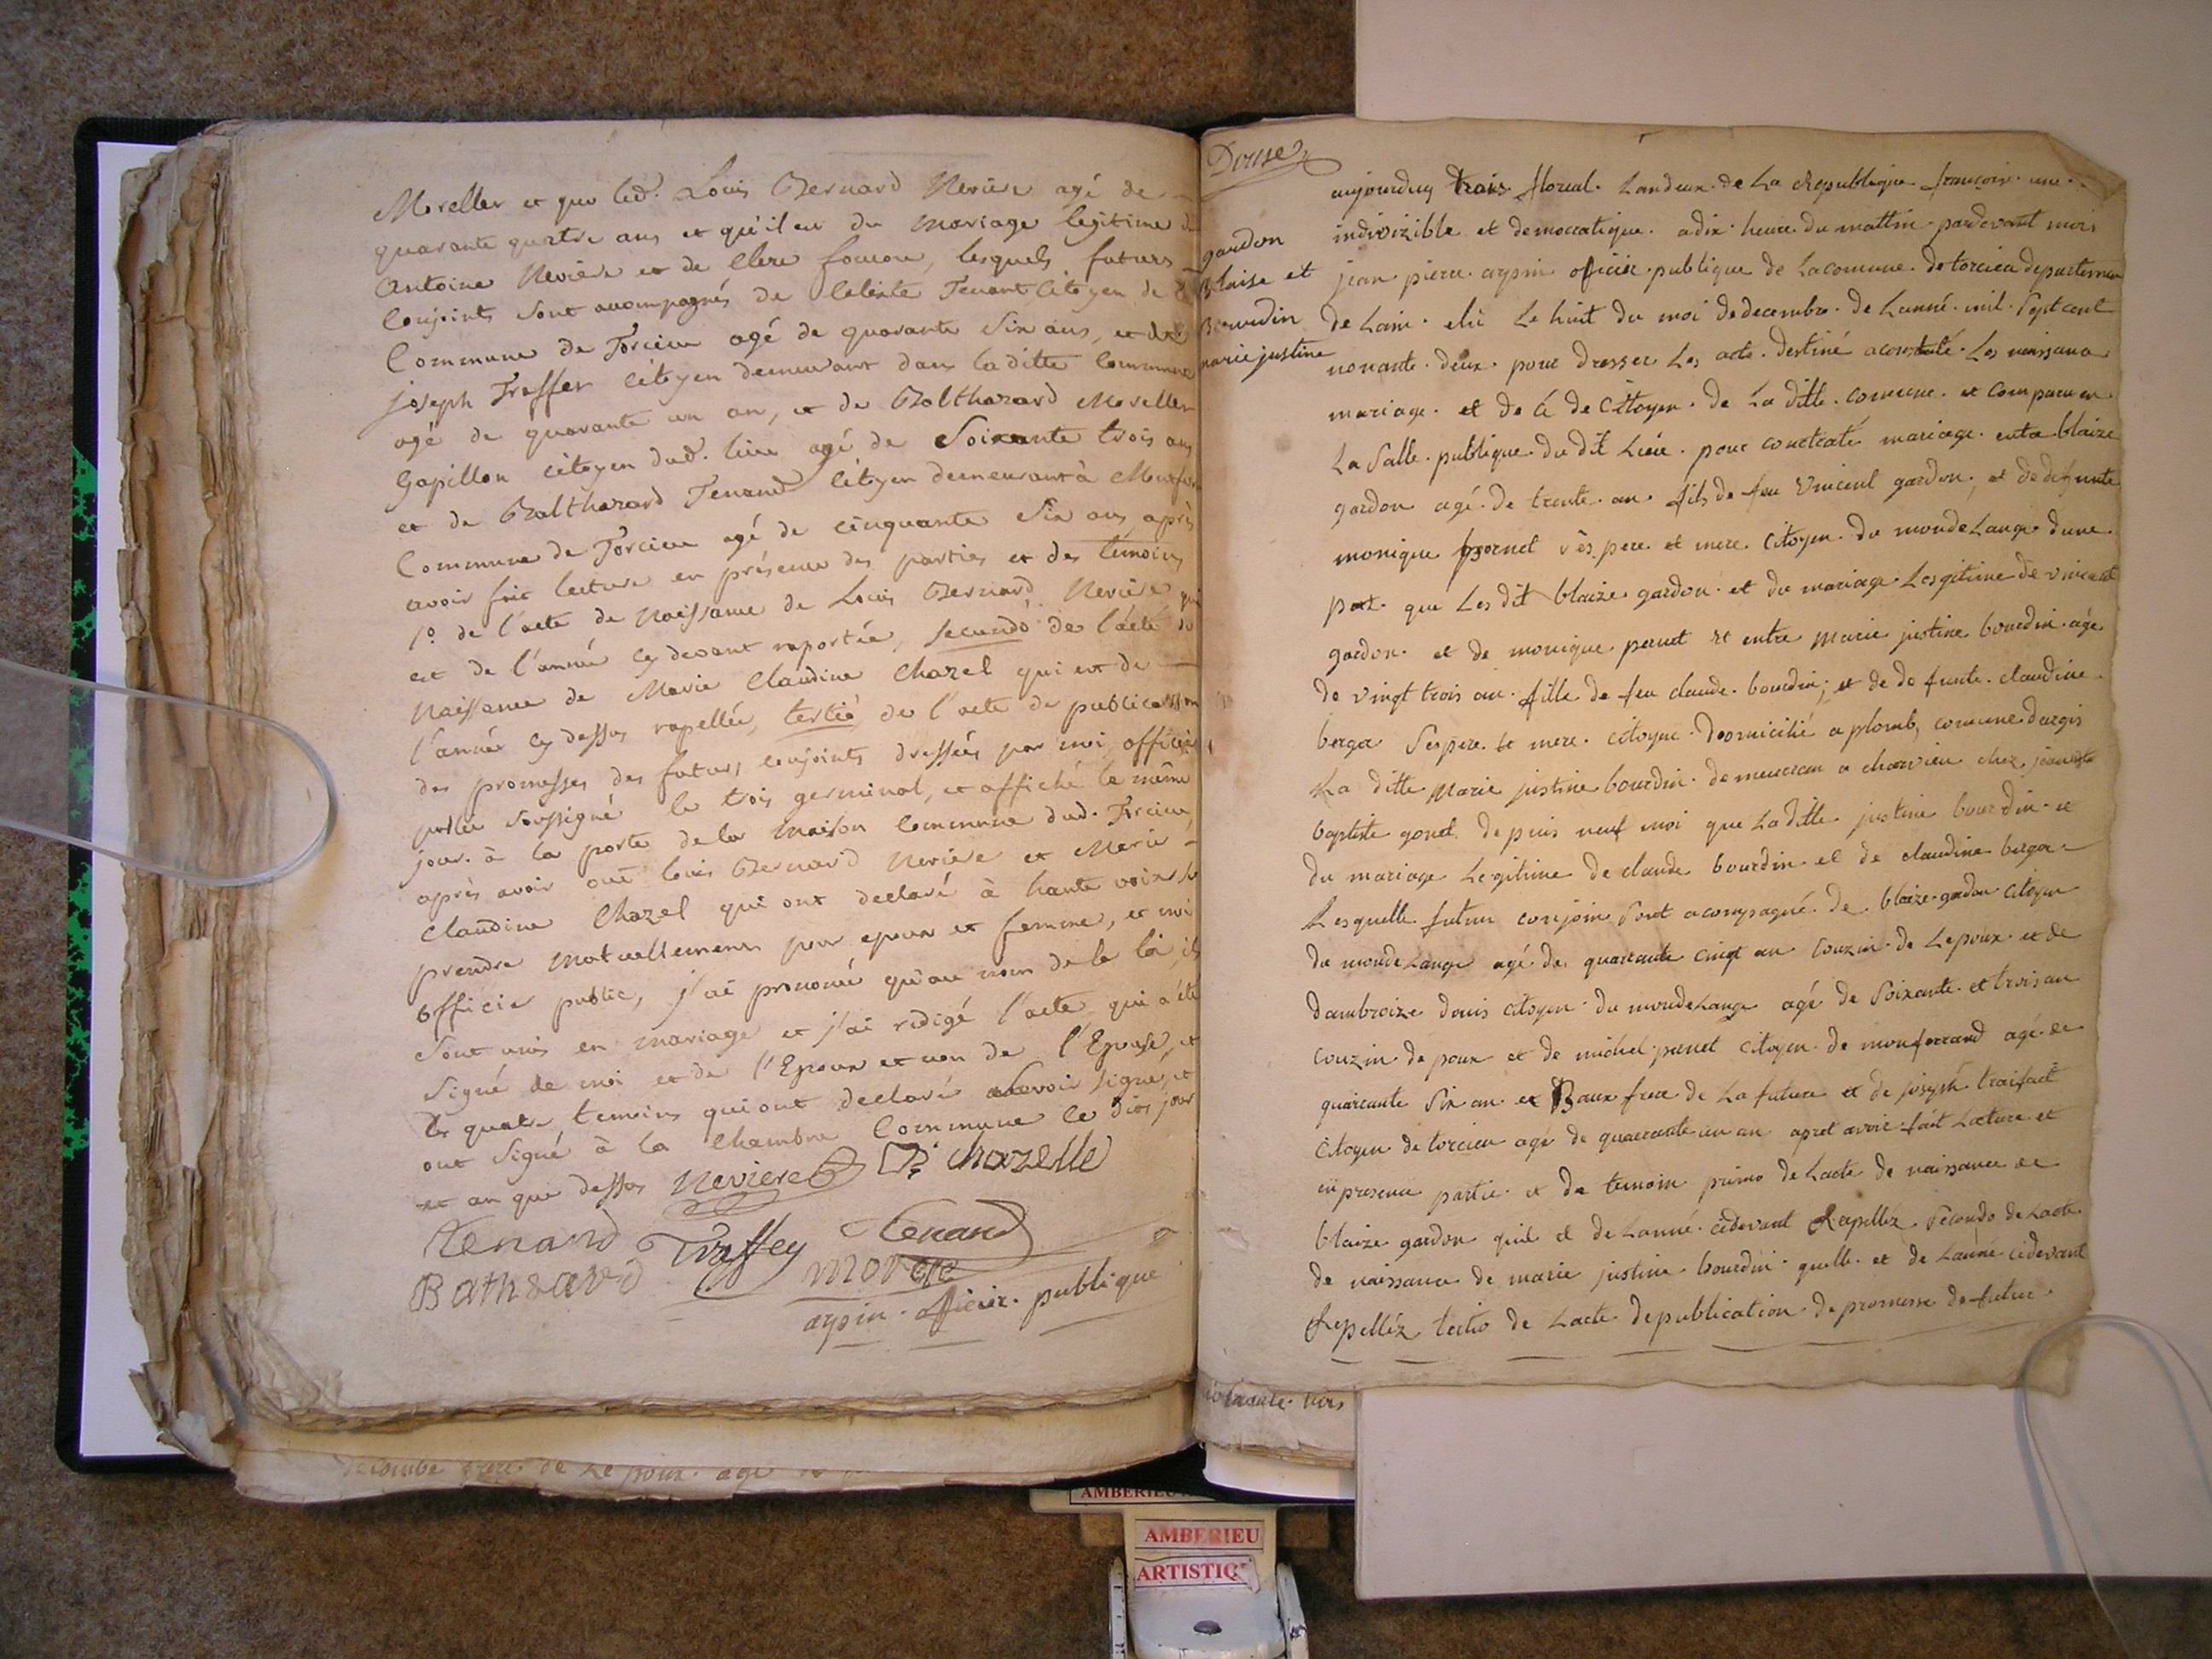 Moreller et que led. Louis Bernard Neviere agé de
quarante quatre ans et qu'il est du mariage legitime de
antoine Neviere et de Clere, lesquels futurs
Conjoints sont accompagnés de Celeste Tenant Citoyen de
Commune de Torcieu agé de quarante six ans, et de
joseph Treffey citoyen demeurant dans laditte commune
agé de quarante un an, et de Balthazard Morellen
Gapillon citoyen dud. lieu agé de Soixante trois ans
et de Balthazard Tenand Citoyen demeurant à
Commune de Torcieu agé de cinquante six ans, après
avoir fait lecture en présence des parties et des temoins
1º. de l'acte de Naissance de Louis Bernard Neviere qui
est de l'année cy devant raportée, secundò de l'acte de
Naissance de Marie Claudine Chazel qui est de
l'année cy dessus rapellée, tertiò de l'acte de publication
des promesses des futurs conjoints dressées par moi officier
public soussigné le trois germinal, et affiché le même
jour à la porte de la Maison Commune dud. Torcieu,
après avoir oui Louis Bernard Neviere et Marie
Claudine Chazel qui ont declaré à haute voix se
prendre Mutuellement pour epoux et femme, et moi
Officier public, j'ai prononcé qu'au nom de la loi, ils
Sont unis en mariage et j'ai redigé l'acte qui a été
Signé de moi et de l'Epoux et non de l'Epouse, et
des quatre temoins qui ont declaré savoir signer, et
ont Signé à la Chambre Commune le dits jour
et an que dessus Neviere chazelle
Tenand Traffey Tenand
Bathsavd morele
arpin officier publique
Douse
gardon
Blaise et
Bourdin
marie justine
aujourduy trois floreal Landeux de La Republique francoise une
indivizible et democratique a dix heure du mattin pardevant moi
jean pierre arpin oficier publique de Lacomune de torcieu departemen
de Lain elu Le huit du moi de decembre de Lanné mil Sept cent
nonante deux pour dresser Les acte destiné a constaté Les naissance
mariage et de cé de Citoyen de La ditte comune et comparu en
La Salle publique du dit Lieu pour contracté mariage entre blaize
gardon agé de trente an fils de feu Vincent gardon et de defunte
monique pernet ses pere et mere Citoyen du monde Lange dune
part que Les dit blaize gardon et du mariage Legitime de vincent
gardon et de monique pernet et entre marie justine bourdin agé
de vingt trois an fille de feu claude bourdin et de de funte claudine
berger Ses pere et mere citoyne domicilié a plomb, comune dargis
La ditte marie justine bourdin demeurean a charvieu chez jean
baptiste gonet depuis neuf moi que La ditte justine bourdin et
du mariage Legitime de claude bourdin et de claudine berger
Lesquelle futur conjoin Sont acompagné de blaize gardon citoyen
du monde Lange agé de quarante cinqt an couzin de Lepoux et de
dambroize douis citoyen du monde Lange agé de Soixante et trois an
couzin de poux et de michel pernet citoyen de monferrand agé de
quarante Six an et Baux frere de La future et de joseph traifait
citoyen de torcieu agé de quarante un an apret avoir fait Lecture et
en presence partie et de temoin primo de Lacte de naissance de
blaize gardon quil et de Lanné cidevant Rapellez Secondo de Lacte
de naissance de marie justine bourdin quelle et de Lanné cidevant
Repelléz tertio de Lacte de publication de promesse de futur
nonante trois
frere de Le poux agé
AMBERIEU
AMBERIEU
ARTISTIQ